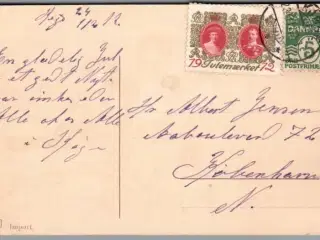 Køge 24/12 12.
En glædelig Jul
et godt Nytt
Aar ønskes eder
Alle
i Køge
19 Julemærket 12
DANMARK
5
POSTFRIM
Hr Albert Jensen
Aaboulevard 72
København
N.